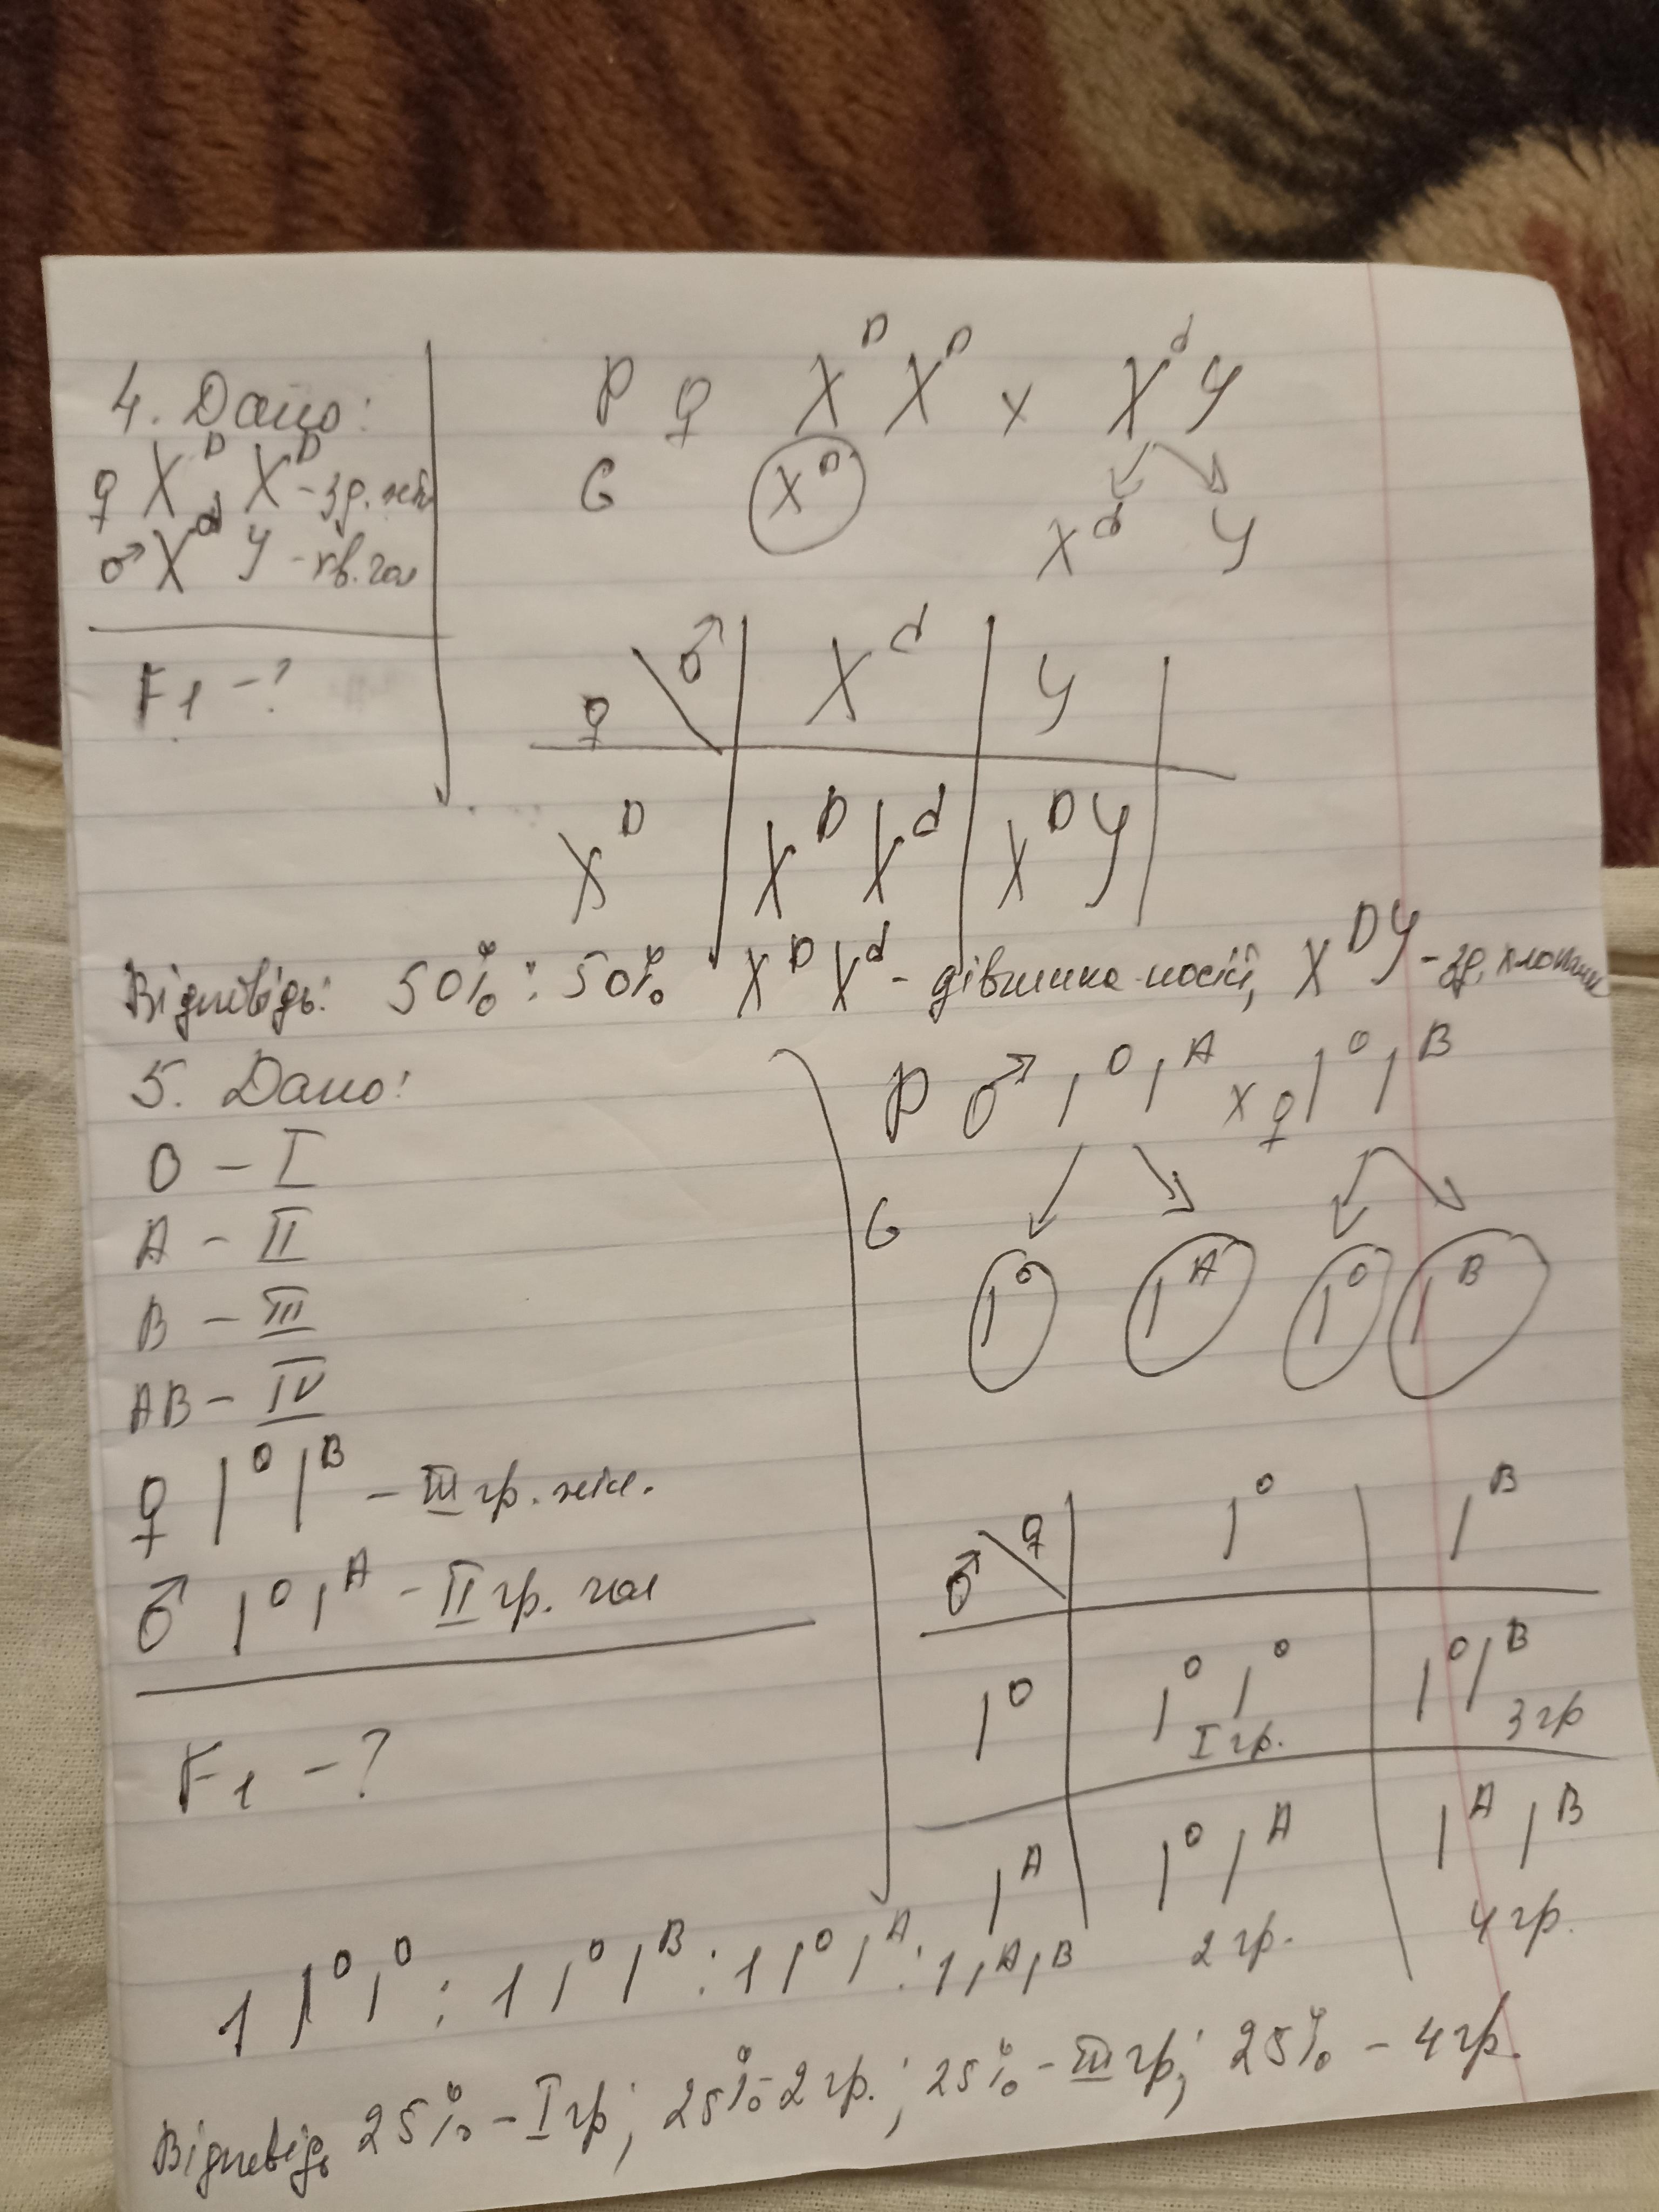 4. Дано:
♀ X^D X^D - зд. жін
♂ X^d Y - хв. чол
F1 - ?
P ♀ X^D X^D x X^d Y
G X^D X^d Y
♀ \ ♂ X^d Y
X^D X^D X^d X^D Y
Відповідь: 50% : 50% X^D X^d - дівчинка-носій, X^D Y - зд. хлопчик
5. Дано:
O - I
A - II
B - III
AB - IV
♀ I^O I^B - III гр. жін.
♂ I^O I^A - II гр. чол
F1 - ?
P ♂ I^O I^A x ♀ I^O I^B
G I^O I^A I^O I^B
♂ \ ♀ I^O I^B
I^O I^O I^O I^O I^B
I гр. 3 гр
I^A I^O I^A I^A I^B
2 гр. 4 гр.
1 I^O I^O : 1 I^O I^B : 1 I^O I^A : 1 I^A I^B
Відповідь 25% - I гр; 25% - 2 гр.; 25% - III гр; 25% - 4 гр.